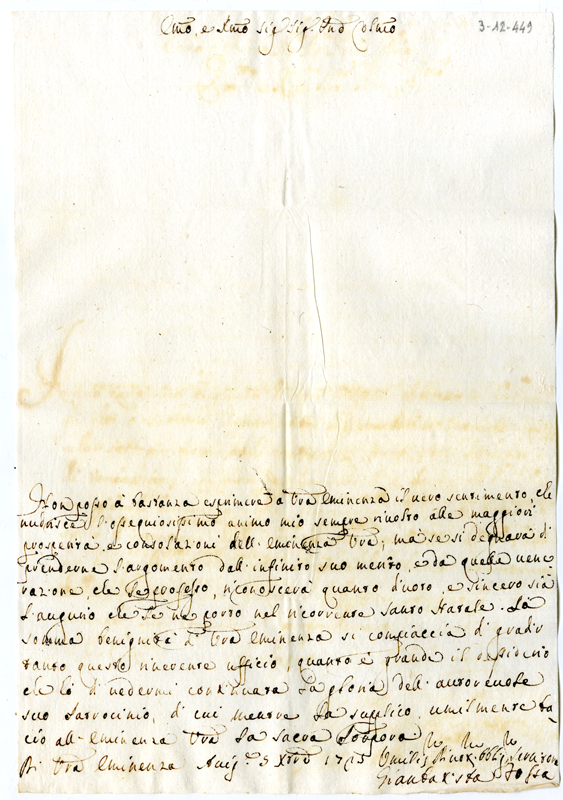 Emo, e Rmo Sig.r Sig.r Pne Colmo
3-12-449
Non posso à bastanza esprimere a Vra Eminenza il vero sentimento, che
nudrisce l'ossequiosissimo animo mio sempre rivolto alle maggiori
prosperità, e consolazioni dell'Eminenza Vra; ma se si degnarà di
prenderne l'argomento dall'infinito suo merito, e da quella vene
razione, che le professo, riconoscerà quanto divoto, e sincero sia
l'augurio che le ne porto nel ricorrente Santo Natale. La
somma benignità di Vra Eminenza si compiaccia di gradir
tanto questo riverente ufficio, quanto è grande il desiderio
che hò di vedermi continuata la gloria dell'autorevole
suo Patrocinio, di cui mentre la supplico, umilmente ba
cio all'Eminenza Vra la Sacra Porpora
Di Vra Eminenza 1715 Umiliss. Divot. Obblig. Servitore